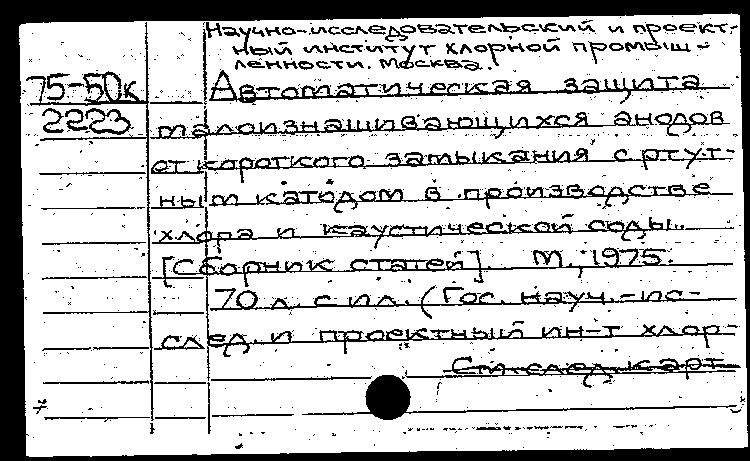 Научно-исследовательский и проект-
ный институт хлорной промыш-
ленности. Москва.
75-50к Автоматическая защита
2223 малоизнашивающихся анодов
от короткого замыкания с ртут-
ным катодом в производстве
хлора и каустической соды.
[Сборник статей]. М., 1975.
70 л. с ил. (Гос. науч.-ис-
след. и проектный ин-т хлор-
См. след. карт